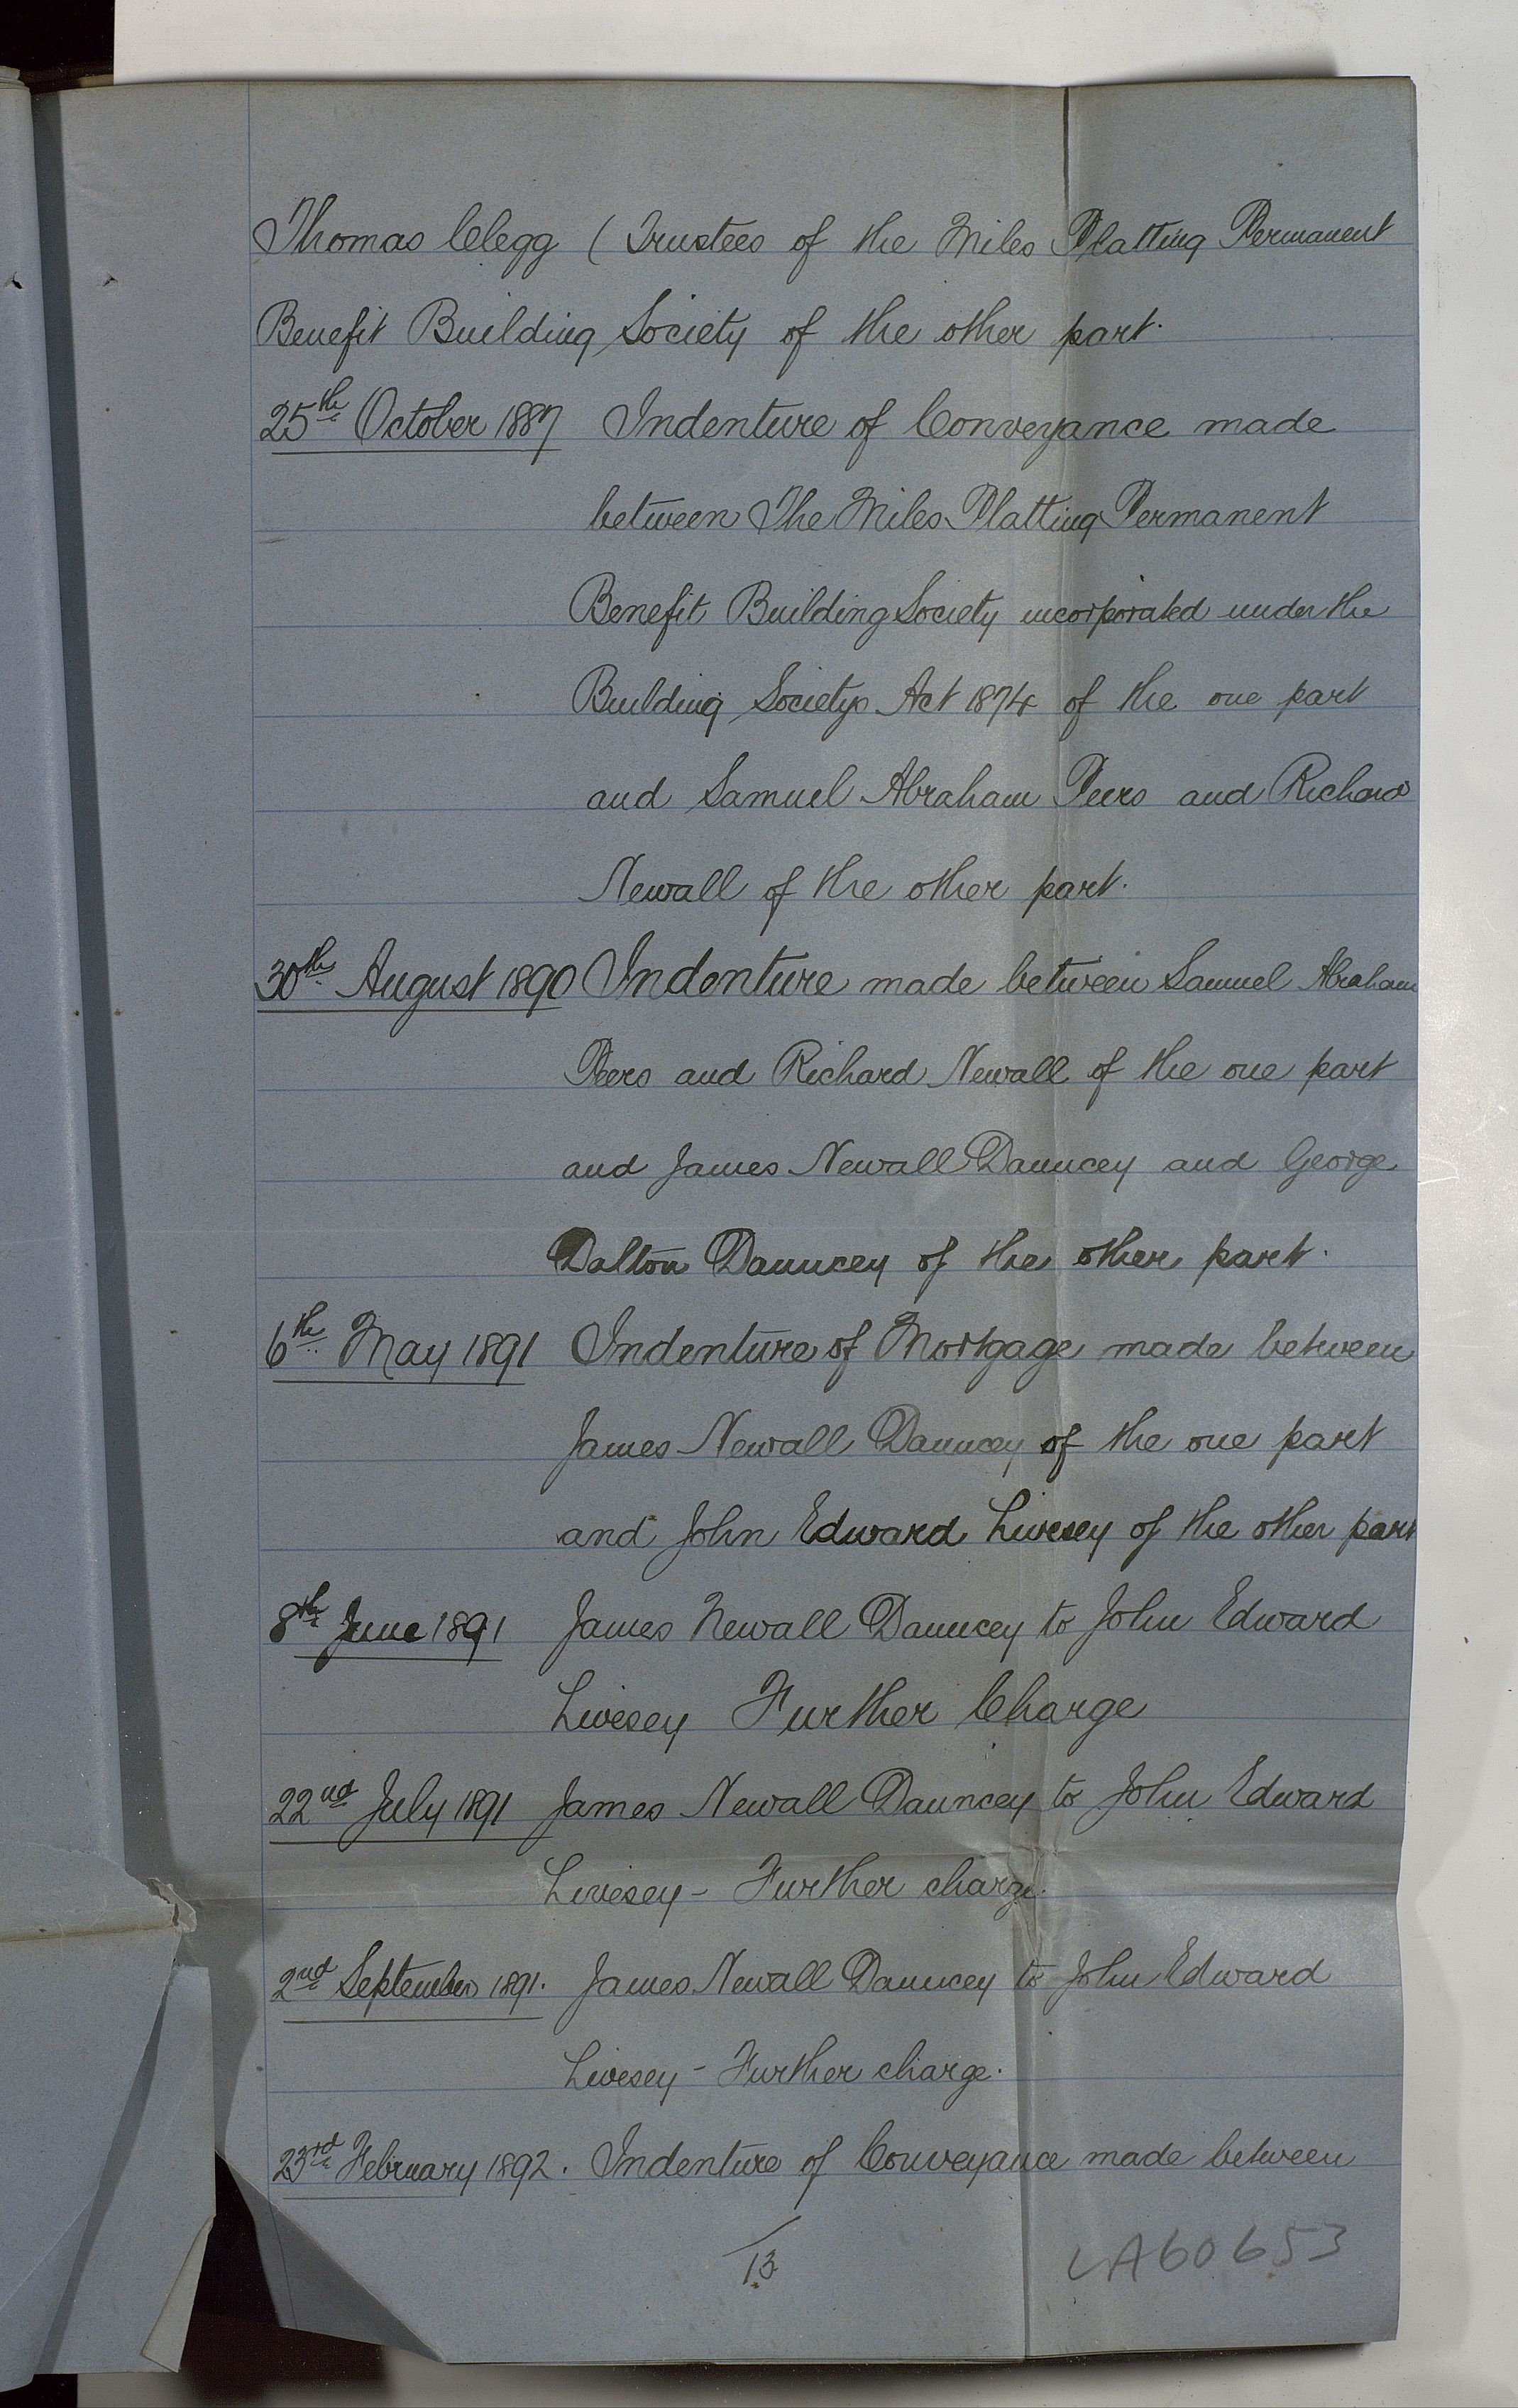 Thomas Clegg (Trustees of the Miles Platting Permanent
Benefit Building Society of the other part.
25th October 1887 Indenture of Conveyance made
between The Miles Platting Permanent
Benefit Building Society incorporated under the
Building Societys Act 1874 of the one part
and Samuel Abraham Peers and Richard
Newall of the other part.
30th August 1890 Indenture made between Samuel Abraham
Peers and Richard Newall of the one part
and James Newall Dauncey and George
Dalton Dauncey of the other part.
6th May 1891 Indenture of Mortgage made between
James Newall Dauncey of the one part
and John Edward Livesey of the other part
8th June 1891 James Newall Dauncey to John Edward
Livesey Further Charge
22nd July 1891 James Newall Dauncey to John Edward
Livesey - Further charge.
2nd September 1891. James Newall Dauncey to John Edward
Livesey - Further charge.
23rd February 1892. Indenture of Conveyance made between
13
LA60653